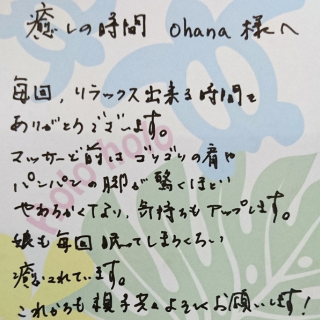 癒しの時間 ohana様へ
毎回、リラックス出来る時間を
ありがとうございます。
マッサージ前はゴリゴリの肩や
パンパンの脚が驚くほど
やわらかくなり、気持ちもアップします。
娘も毎回眠ってしまうくらい
癒されています。
これからも親子共々よろしくお願いします!
holo holo